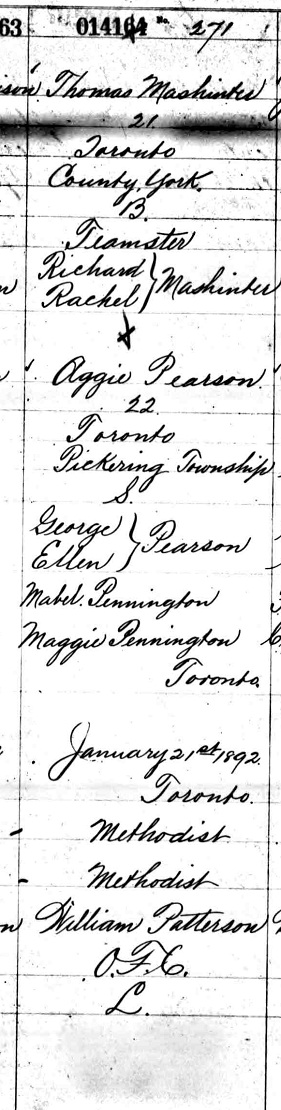 63
014164 No. 271
Thomas Mashinter
21
Toronto
County York.
B.
Teamster
Richard } Mashinter
Rachel
Aggie Pearson
22
Toronto
Pickering Township
S.
George } Pearson
Ellen
Mabel. Pennington
Maggie Pennington
Toronto
January 21st 1892.
Toronto.
Methodist
Methodist
William Patterson
O.F.C.
L.